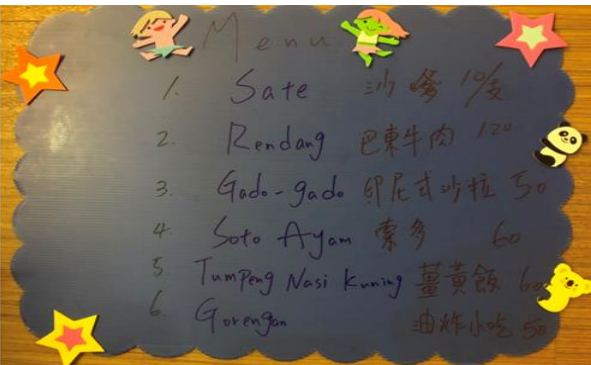 Menu
1. Sate 沙嗲 10/支
2. Rendang 巴東牛肉 120
3. Gado-gado 印尼式沙拉 50
4. Soto Ayam 索多 60
5. Tumpeng Nasi Kuning 薑黃飯 60
6. Gorengan 油炸小吃 50